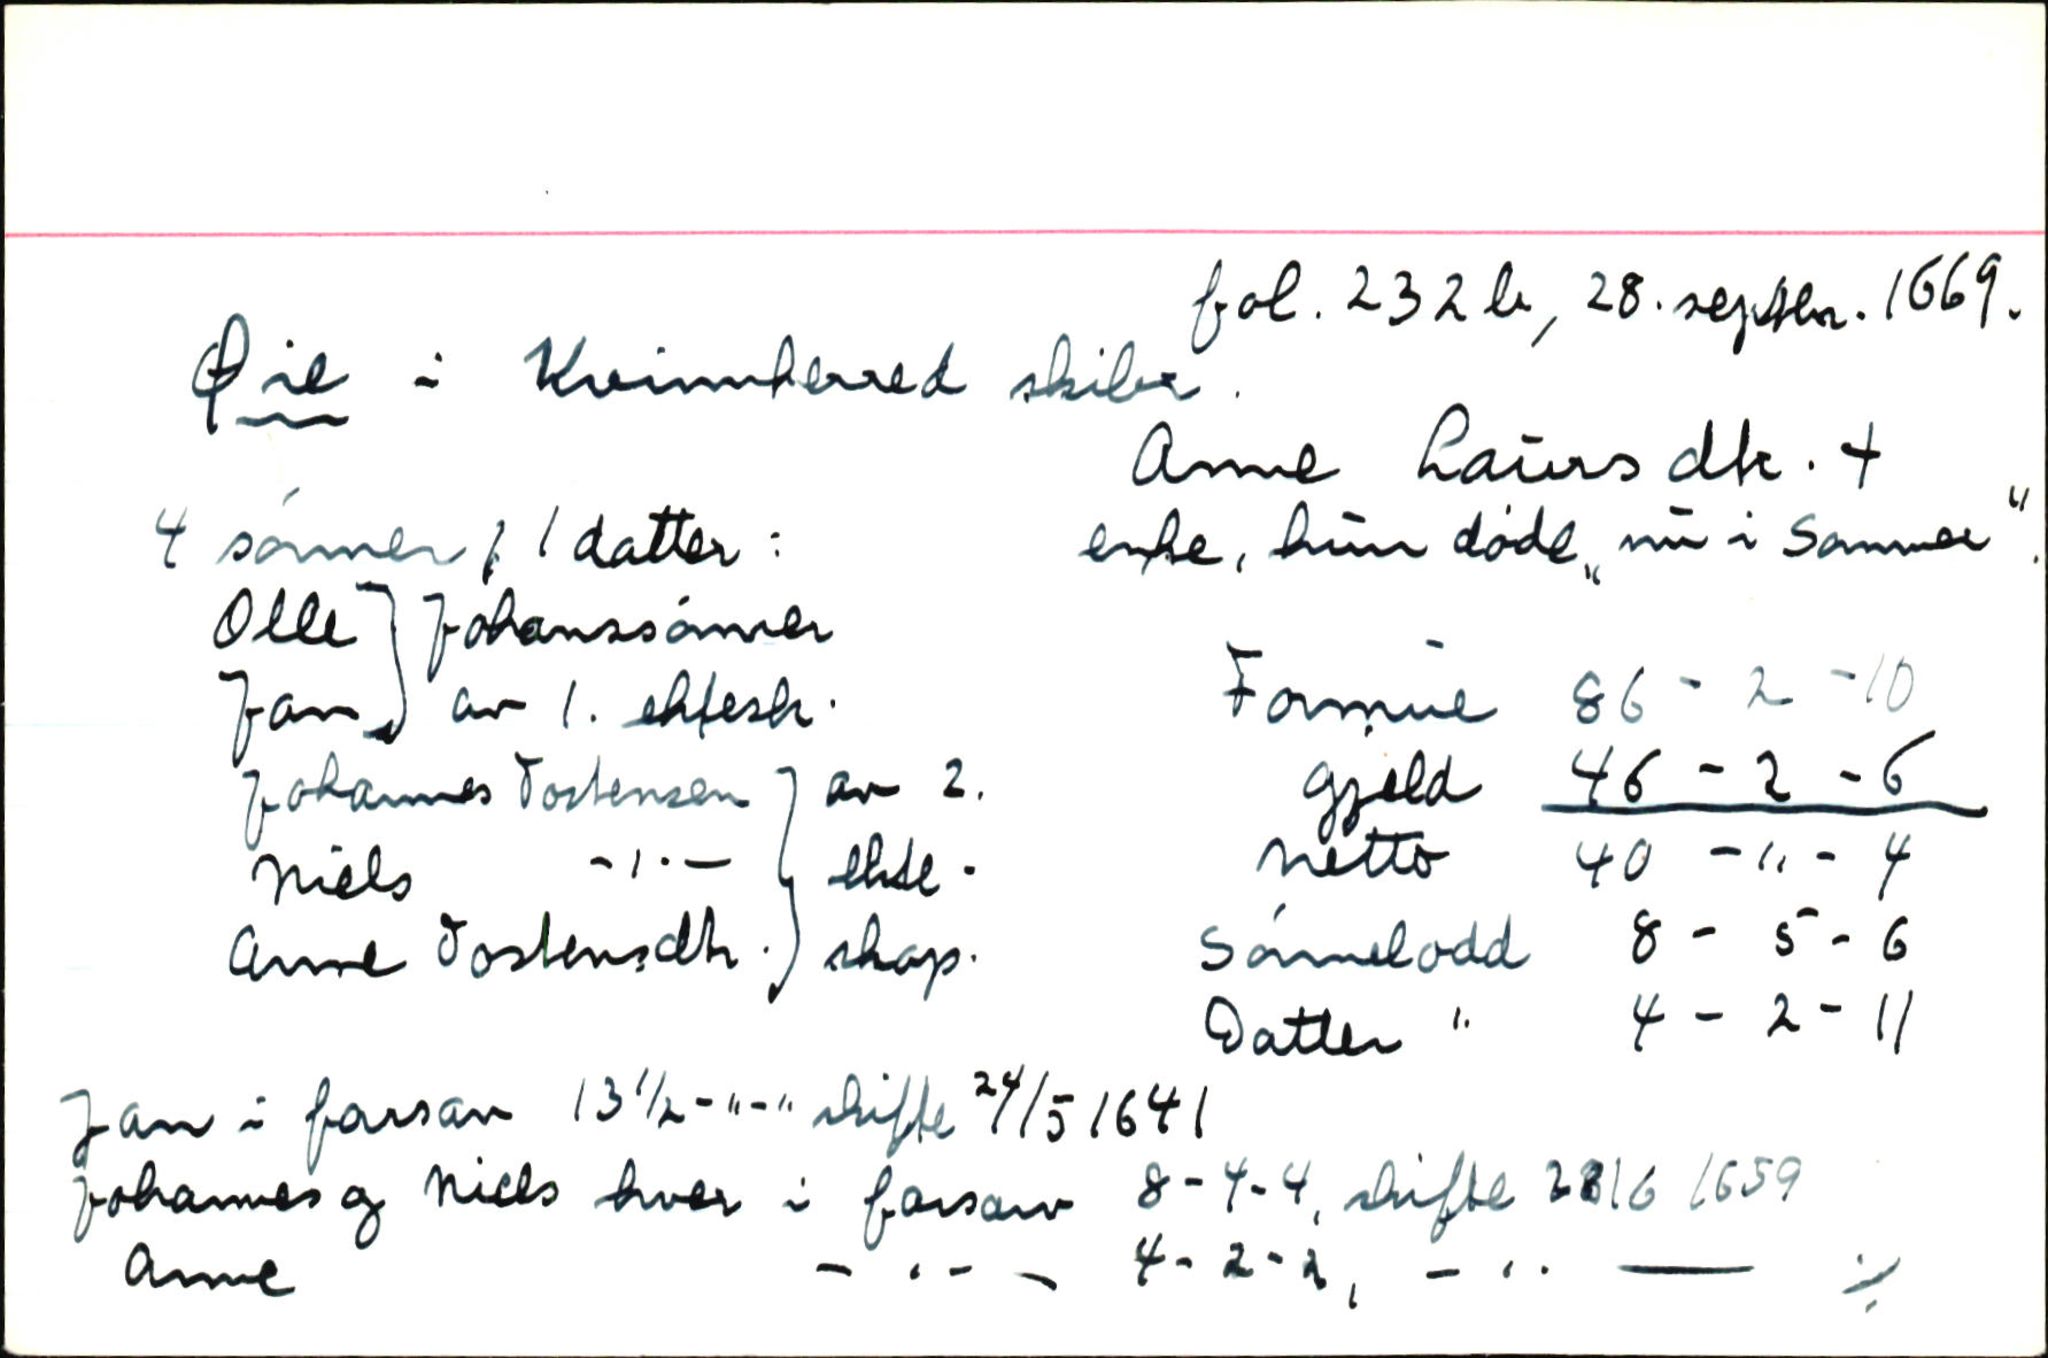 fol. 232 b, 28. septbr. 1669.
Øie i Kvinnherred skibr.
Anne Laursdtr. +
enke, hun døde „nu i Sommer“.
4 sønner, 1 datter:
Olle } Johanssønner
Jan } av 1. ektesk.
Johannes Tostensen } av 2.
Niels -"- } ekte-
Anne Tostensdtr. } skap.
Formue 86 - 2 - 10
Gjeld 46 - 2 - 6
Netto 40 - " - 4
Sønnelodd 8 - 5 - 6
Datter " 4 - 2 - 11
Jan i farsarv 13 1/2 - " - " skifte 24/5 1641
Johannes og Niels hver i farsarv 8 - 4 - 4, skifte 28/6 1659
Anne - " - 4 - 2 - 2, - " -